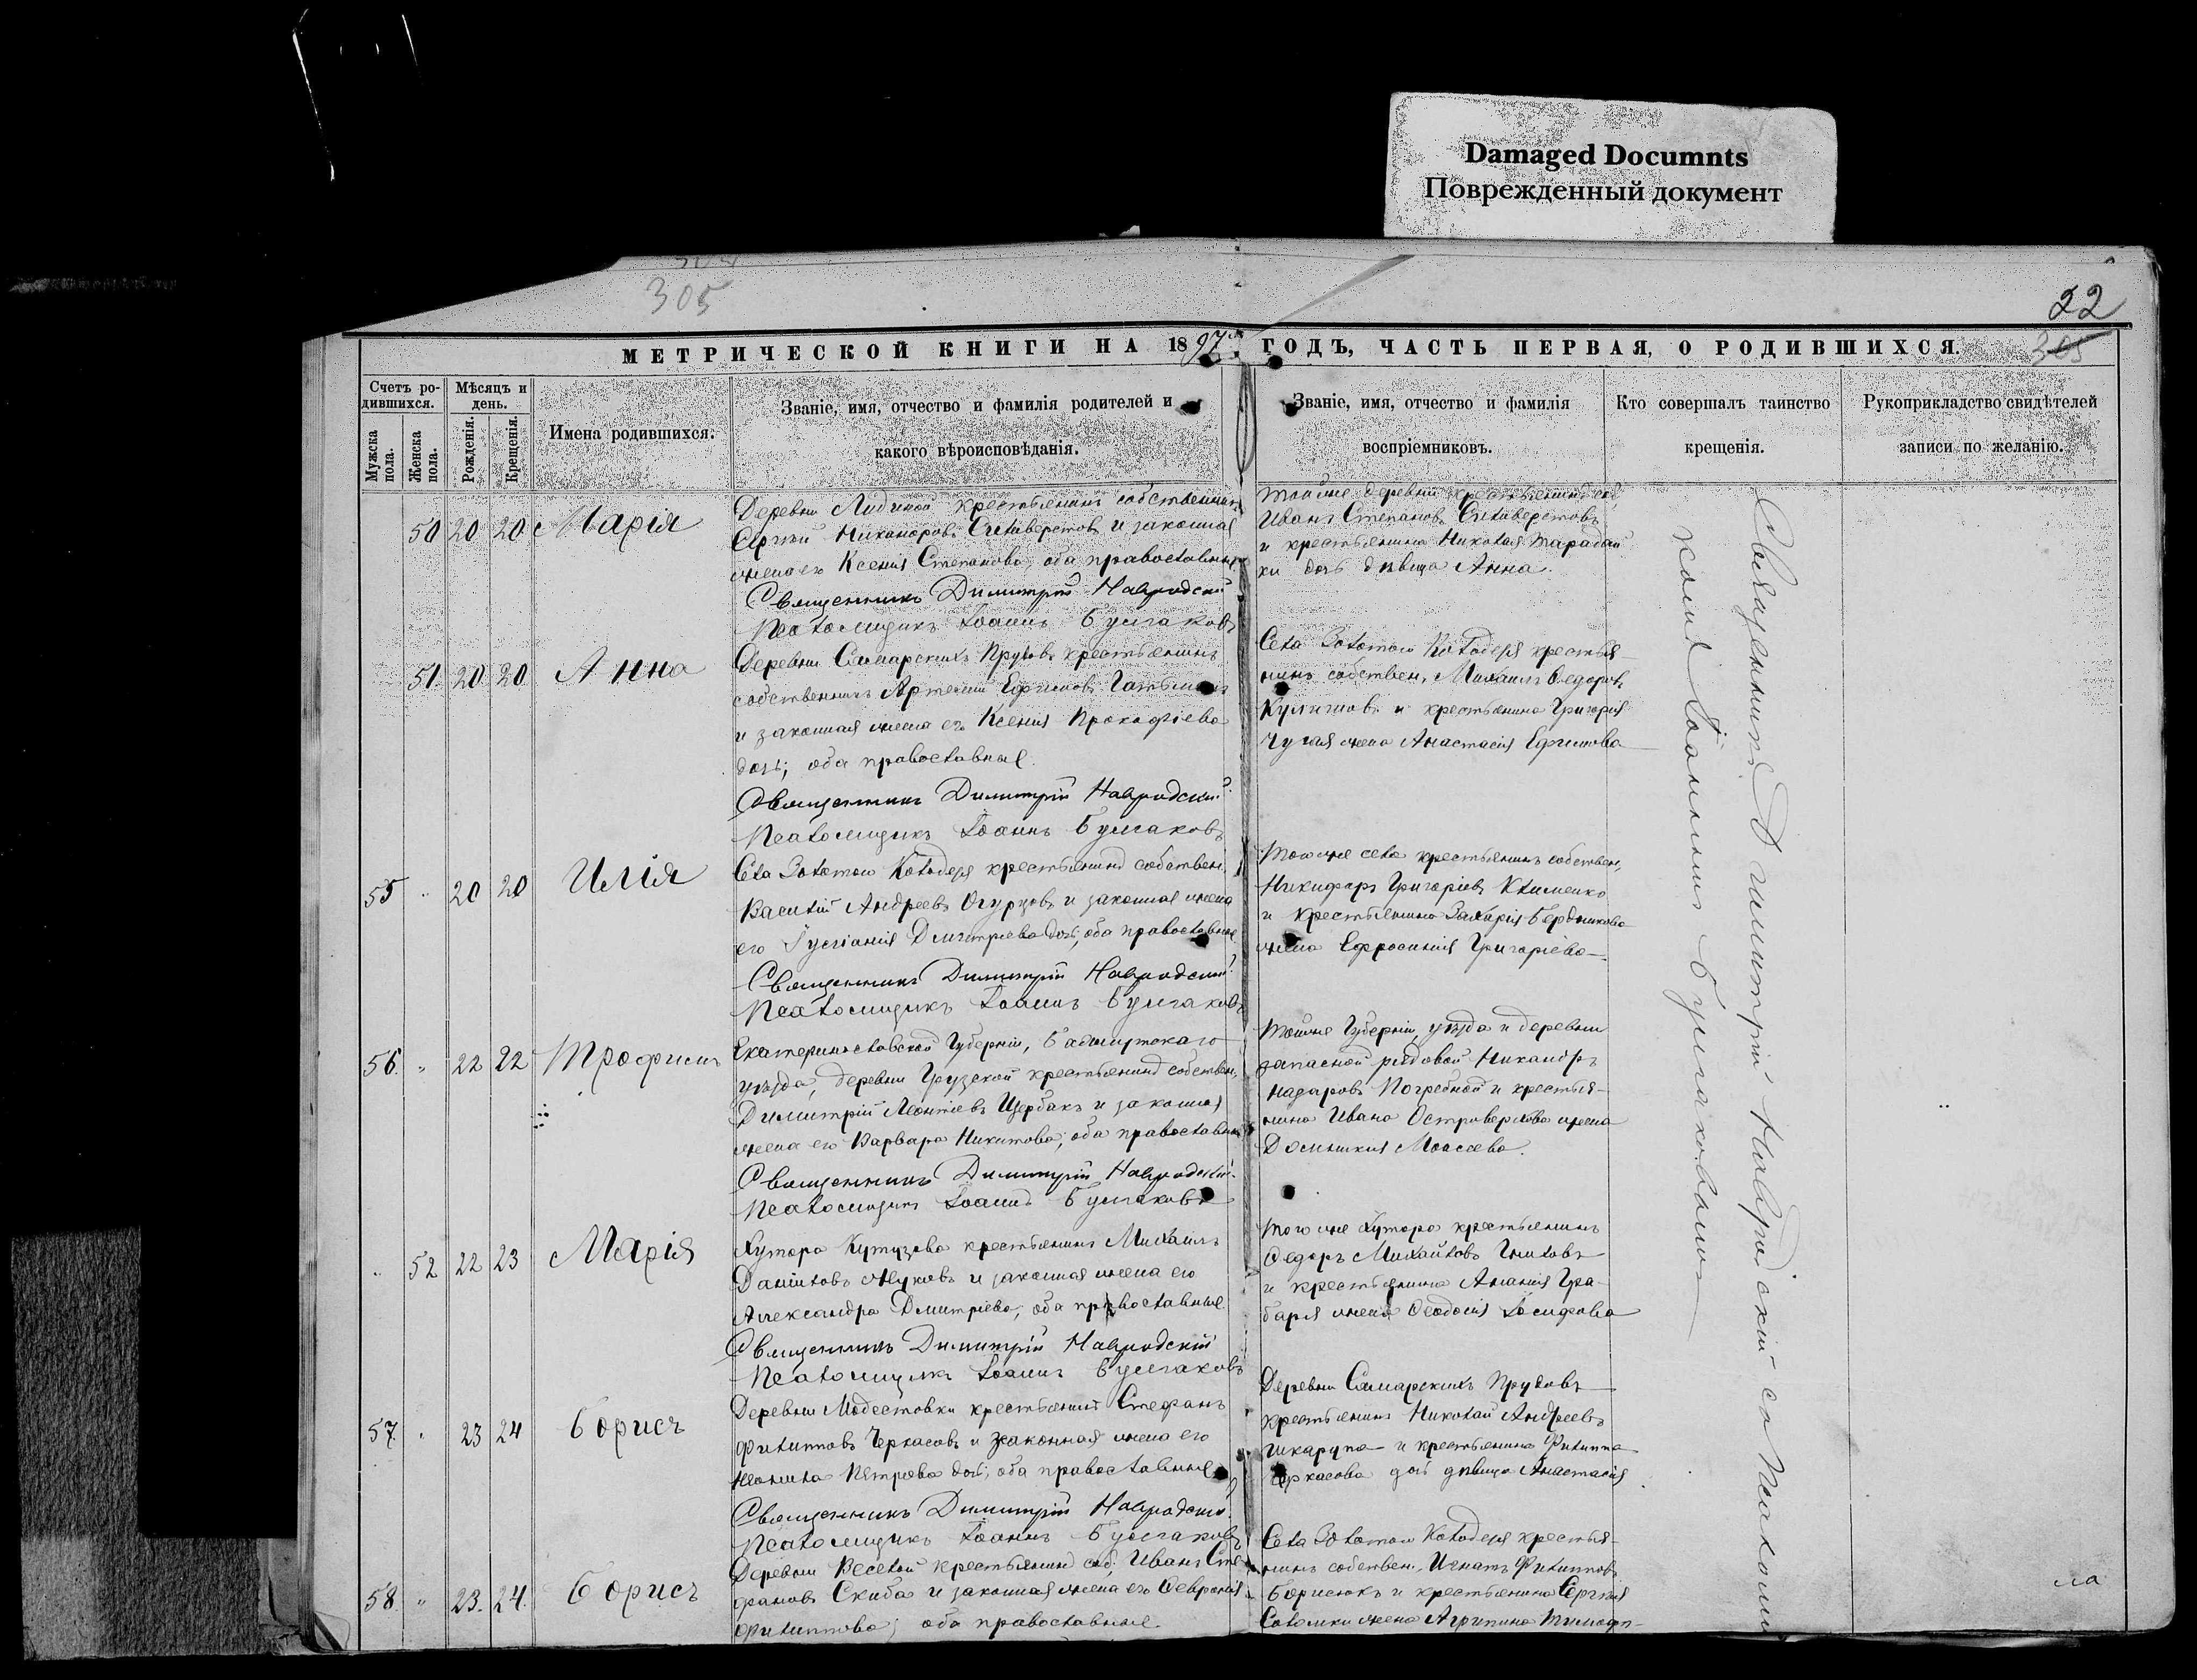 Damaged Documnts
Поврежденный документ
305
22
МЕТРИЧЕСКОЙ КНИГИ НА 1897 ГОДЪ, ЧАСТЬ ПЕРВАЯ, О РОДИВШИХСЯ.
305
Счетъ ро-
дившихся.
Мужска пола.
Женска пола.
Мѣсяцъ и
день.
Рожденія.
Крещенія.
Имена родившихся.
Званіе, имя, отчество и фамилія родителей и
какого вѣроисповѣданія.
Званіе, имя, отчество и фамилія
воспріемниковъ.
Кто совершалъ таинство
крещенія.
Рукоприкладство свидѣтелей
записи по желанію.
50 20 20 Марія
Деревни Лидиной крестьянинъ собственникъ
Сергѣй Никаноровъ Селиверстовъ и законная
жена его Ксенія Степанова, оба православные
Священникъ Димитрій Навродскій
Псаломщикъ Іоаннъ Булгаковъ
Тойже деревни крестьянинъ соб.
Иванъ Степановъ Селиверстовъ
и крестьянина Николая Тарабай
ки дочь дѣвица Анна.
51 20 20 Анна
Деревни Самарскихъ Прудовъ крестьянинъ
собственникъ Артемій Ефимовъ
и законная жена его Ксенія Прокофіева
дочь; оба православные.
Священникъ Димитрій Навродскій
Псаломщикъ Іоаннъ Булгаковъ
Села Золотого Колодезя крестья-
нинъ собствен. Михаилъ Ѳедоровъ
Кулишовъ и крестьянина Григорія
Чугая жена Анастасія Ефимова
55 " 20 20 Илія
Села Золотого Колодезя крестьянинъ собствен.
Василій Андреевъ Огурцовъ и законная жена
его Іуліанія Дмитріева дочь; оба православные
Священникъ Димитрій Навродскій
Псаломщикъ Іоаннъ Булгаковъ
Тогоже села крестьянинъ собствен.
Никифоръ Григоріевъ Клименко
и крестьянина Захарія Бердникова
жена Ефросинія Григоріева
56. " 22 22 Трофимъ
Екатеринославской Губерніи, Бахмутскаго
уѣзда, деревни Грузской крестьянинъ собствен.
Димитрій Леонтіевъ Щербакъ и законная
жена его Варвара Никитова; оба православные
Священникъ Димитрій Навродскій
Псаломщикъ Іоаннъ Булгаковъ
Тойже Губерніи, уѣзда и деревни
запасной рядовой Никаноръ
Назаровъ Погребной и крестья-
нина Ивана Островерхова жена
Домникія Моисеева.
" 52 22 23 Марія
Хутора Кутузова крестьянинъ Михаилъ
Даніиловъ Жуковъ и законная жена его
Александра Дмитріева, оба православные
Священникъ Димитрій Навродскій
Псаломщикъ Іоаннъ Булгаковъ
Того же хутора крестьянинъ
Ѳедоръ Михайловъ
и крестьянина Ананія Гра-
баря жена Ѳеодосія Іосифова
57. " 23 24 Борисъ
Деревни Модестовки крестьянинъ Стефанъ
Филипповъ Черкасовъ и законная жена его
Неонила Петрова дочь; оба православные
Священникъ Димитрій Навродскій
Псаломщикъ Іоаннъ Булгаковъ
Деревни Самарскихъ Прудовъ
крестьянинъ Николай Андреевъ
Шкарупа и крестьянина Филиппа
Черкасова дочь дѣвица Анастасія
58. " 23. 24. Борисъ
Деревни Веселой крестьянинъ соб. Иванъ Сте-
фановъ Скиба и законная жена его Ѳевронія
Филиппова; оба православные.
Села Золотого Колодезя крестья-
нинъ собствен. Игнатъ Филипповъ
Борисюкъ и крестьянина Сергѣя
жена Агрипина Тимофѣ-
Священникъ Димитрій Навродскій со Псаломщи
комъ Іоанномъ Булгаковымъ